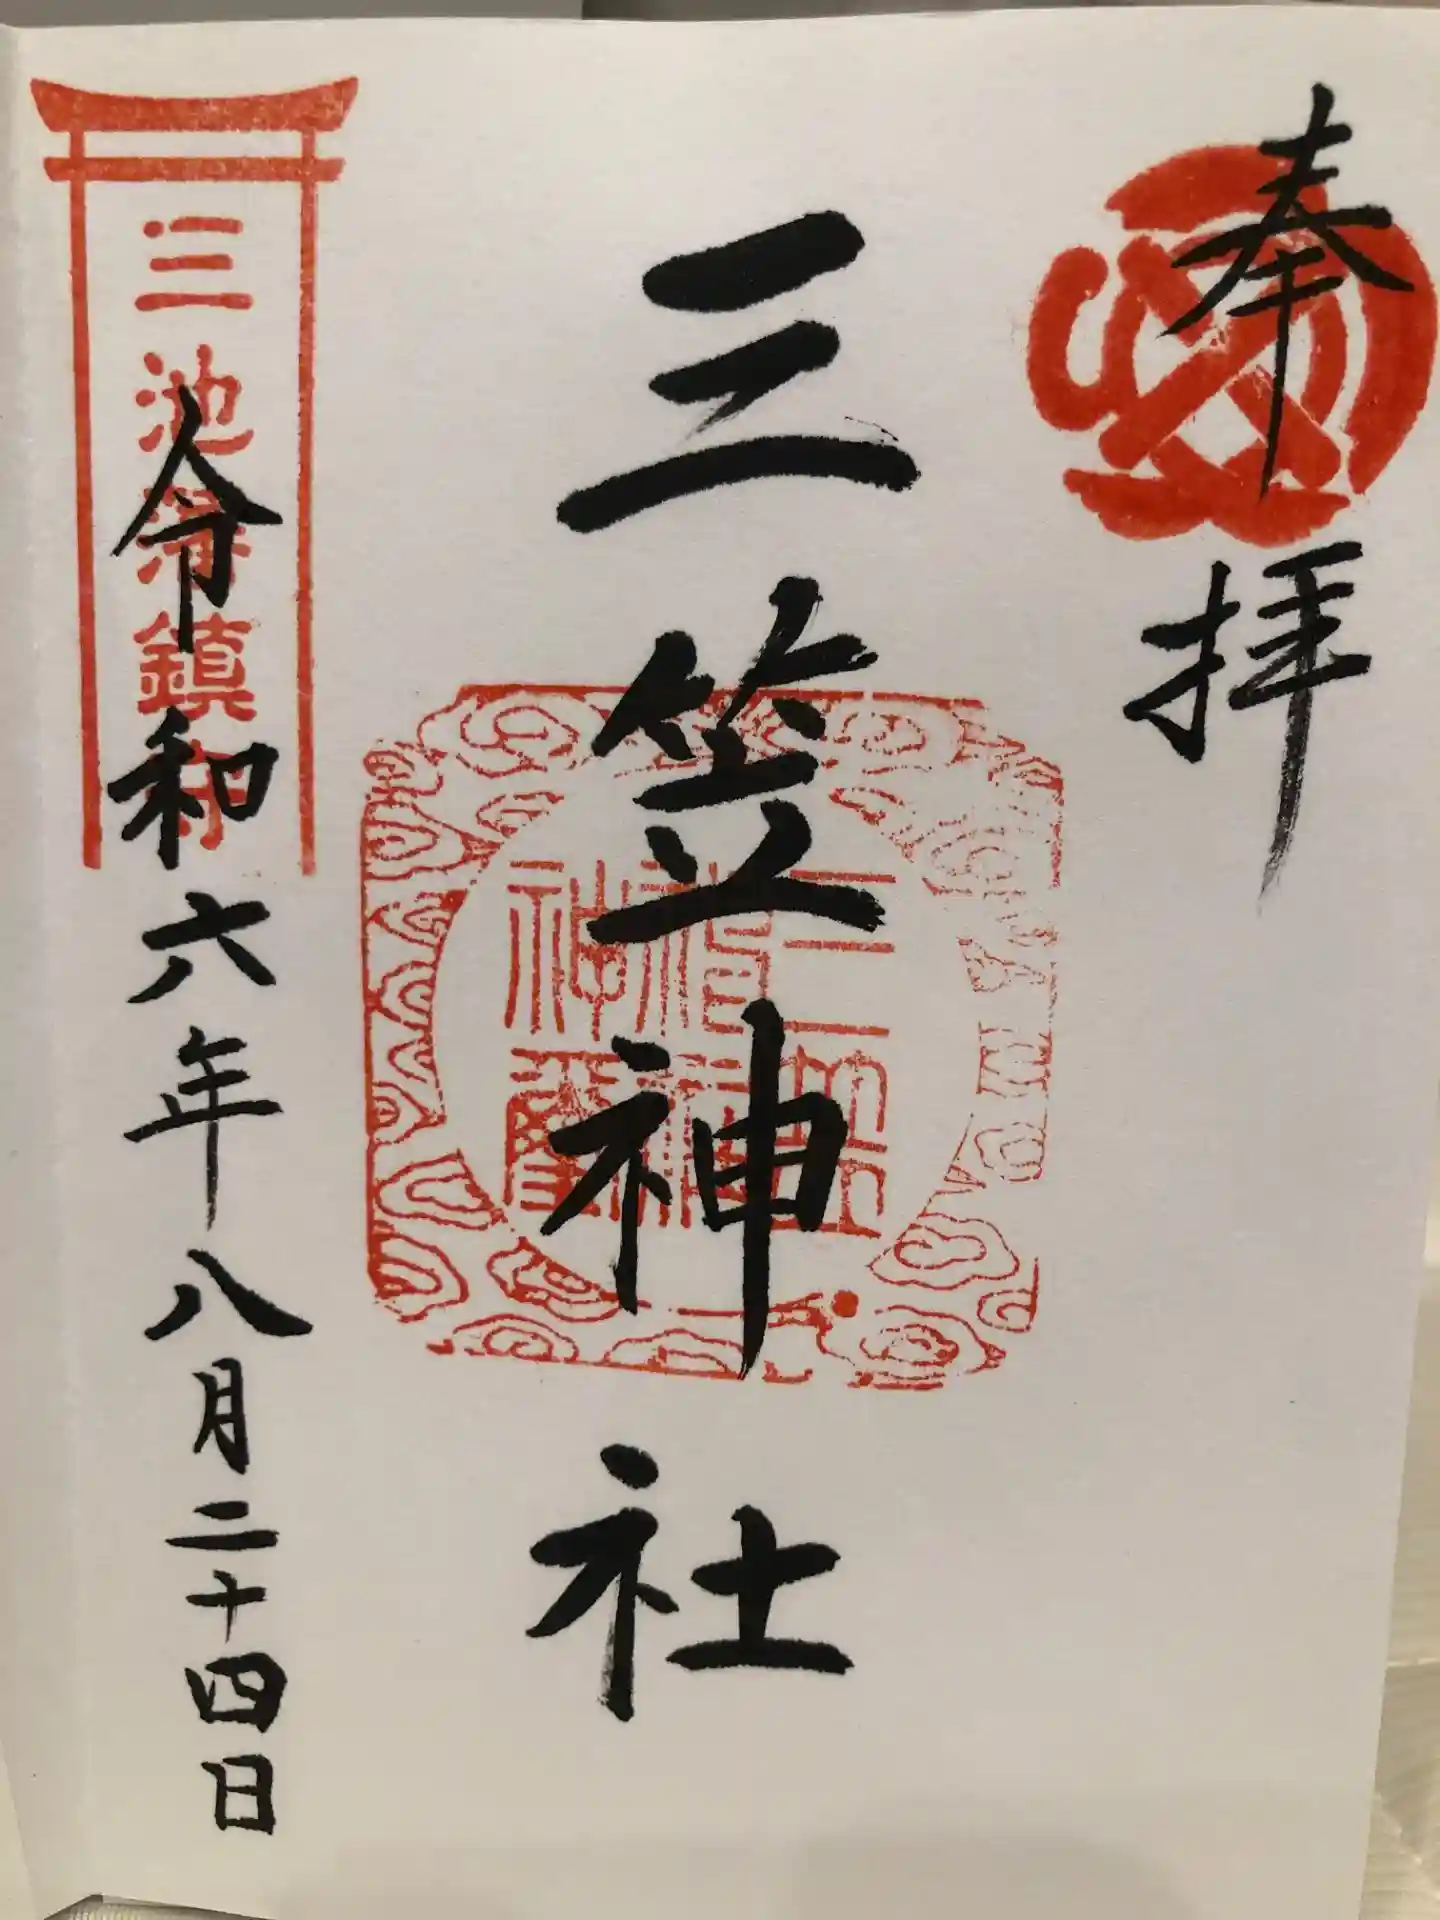 奉拝
三笠神社
三池藩鎮守
令和六年八月二十四日